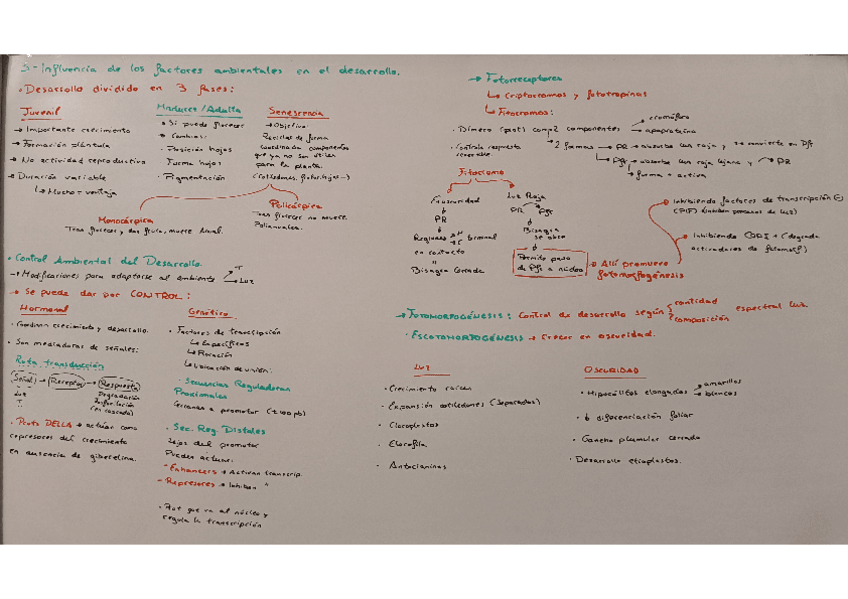 3- Influencia de los factores ambientales en el desarrollo.
• Desarrollo dividido en 3 fases:
Juvenil
→ Importante crecimiento
→ Formación plántula
→ No actividad reproductiva
→ Duración variable
↳ Mucho = ventaja
Madurez / Adulta
• Si puede florecer
• Cambios:
Posición hojas
Forma hojas
Pigmentación
Senescencia
→ Objetivo
Reciclar de forma
coordinada componentes
que ya no son útiles
para la planta.
(cotiledones, flores, hojas...)
Monocárpica
Tras florecer y dar fruto, muere
Policárpica
Tras florecer no muere
• Control Ambiental del Desarrollo
→ Modificaciones para adaptarse al ambiente
T
Luz
→ Se puede dar por CONTROL:
Hormonal
• Coordinan crecimiento y desarrollo.
• Son mediadoras de señales:
Ruta transducción
Señal → Receptor → Respuesta
Luz
Degradación
(en cascada)
• Prots DELLA → actúan como
represores del crecimiento
en ausencia de giberelina.
Genético
• Factores de transcripción
↳ Específicos
↳ Floración
• Secuencias Reguladoras
Proximales
Cercanas a promotor (± 200 pb)
• Sec. Reg. Distales
Lejos del promotor
Pueden actuar:
- Enhancers → Activan transcrip.
- Represores → Inhiben "
• Prot que va al núcleo y
regula la transcripción
→ Fotorreceptores
↳ Criptocromos y fototropinas
↳ Fitocromos:
• Dímero (prot) comp 2 componentes
cromóforo
apoproteína
• Controla respuesta
reversible
2 formas → PR → absorbe luz roja y se convierte en Pfr
↳ Pfr → absorbe luz roja lejana y → PR
↳ forma = activa
Fitocromo
Oscuridad
PR
Regiones
terminal
en contacto
"
Bisagra cerrada
Luz Roja
PR Pfr
Bisagra
se abre
Permite paso
de Pfr a núcleo
→ Allí promueve
fotomorfogénesis
Inhibiendo factores de transcripción
Inhibiendo COP1 + (degrada
activadores de fotomorf)
→ FOTOMORFOGÉNESIS: Control de desarrollo según
cantidad
composición
espectral luz.
• ESCOTOMORFOGÉNESIS → Crecer en oscuridad.
LUZ
• Crecimiento raíces
• Expansión cotiledones (separados)
• Cloroplastos
• Clorofila
• Antocianinas
OSCURIDAD
• Hipocótilos elongados
amarillos
blancos
• ↓ diferenciación foliar
• Gancho plumular cerrado
• Desarrollo etioplastos.